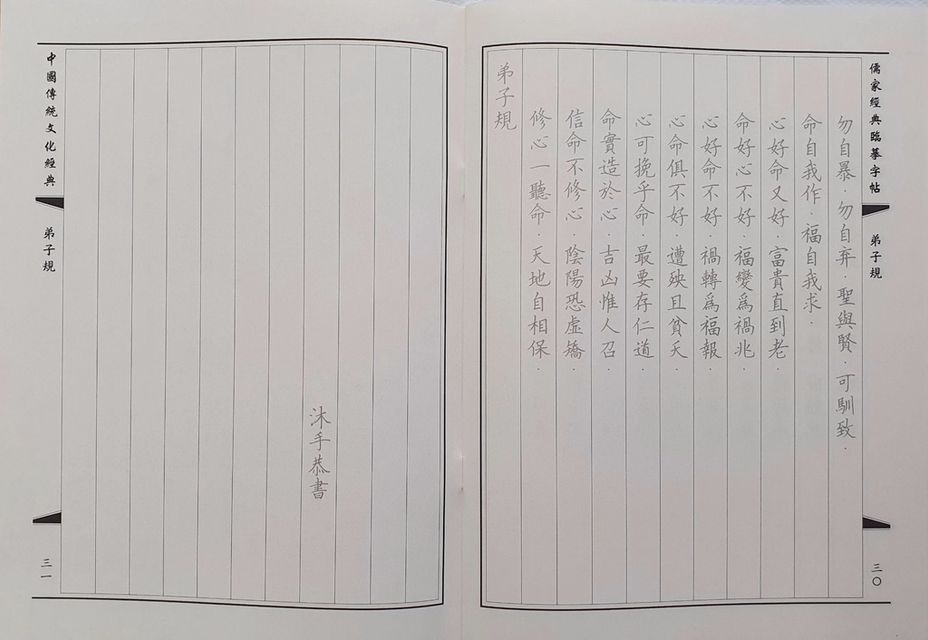 儒家經典臨摹字帖
弟子規
三〇
勿自暴．勿自弃．聖與賢．可馴致．
命自我作．福自我求．
心好命又好．富貴直到老．
命好心不好．福變爲禍兆．
心好命不好．禍轉爲福報．
心命俱不好．遭殃且貧夭．
心可挽乎命．最要存仁道．
命實造於心．吉凶惟人召．
信命不修心．陰陽恐虛矯．
修心一聽命．天地自相保．
弟子規
沐手恭書
中國傳統文化經典
弟子規
三一